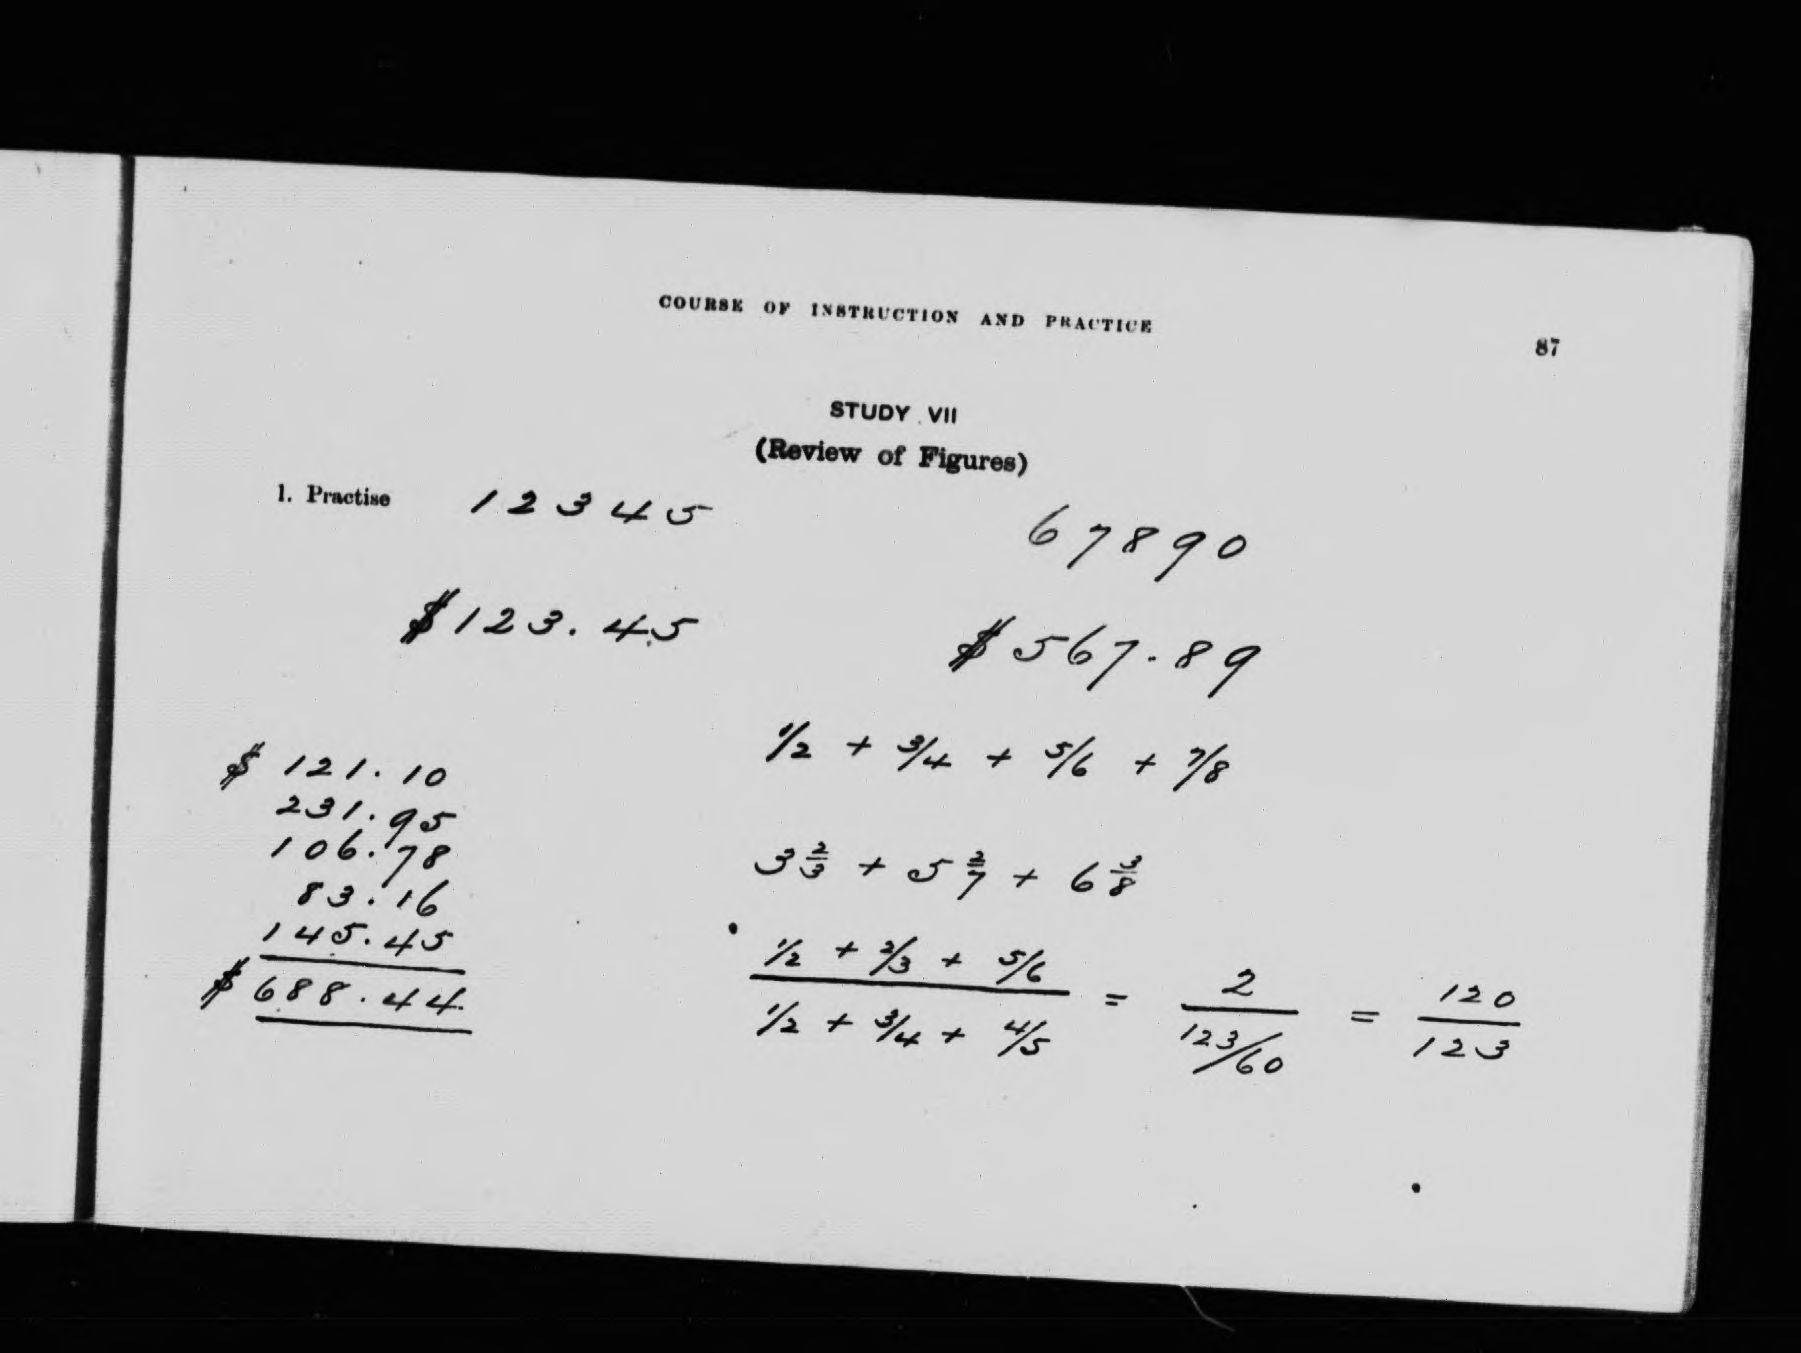 COURSE OF INSTRUCTION AND PRACTICE
87
STUDY VII
(Review of Figures)
1. Practise 1 2 3 4 5 6 7 8 9 0
$123.45 $567.89
1/2 + 3/4 + 5/6 + 7/8
$ 121.10
231.95
106.78
83.16
145.45
$688.44
3 2/3 + 5 2/7 + 6 3/8
1/2 + 2/3 + 5/6
1/2 + 3/4 + 4/5
= 2
123/60
= 120
123